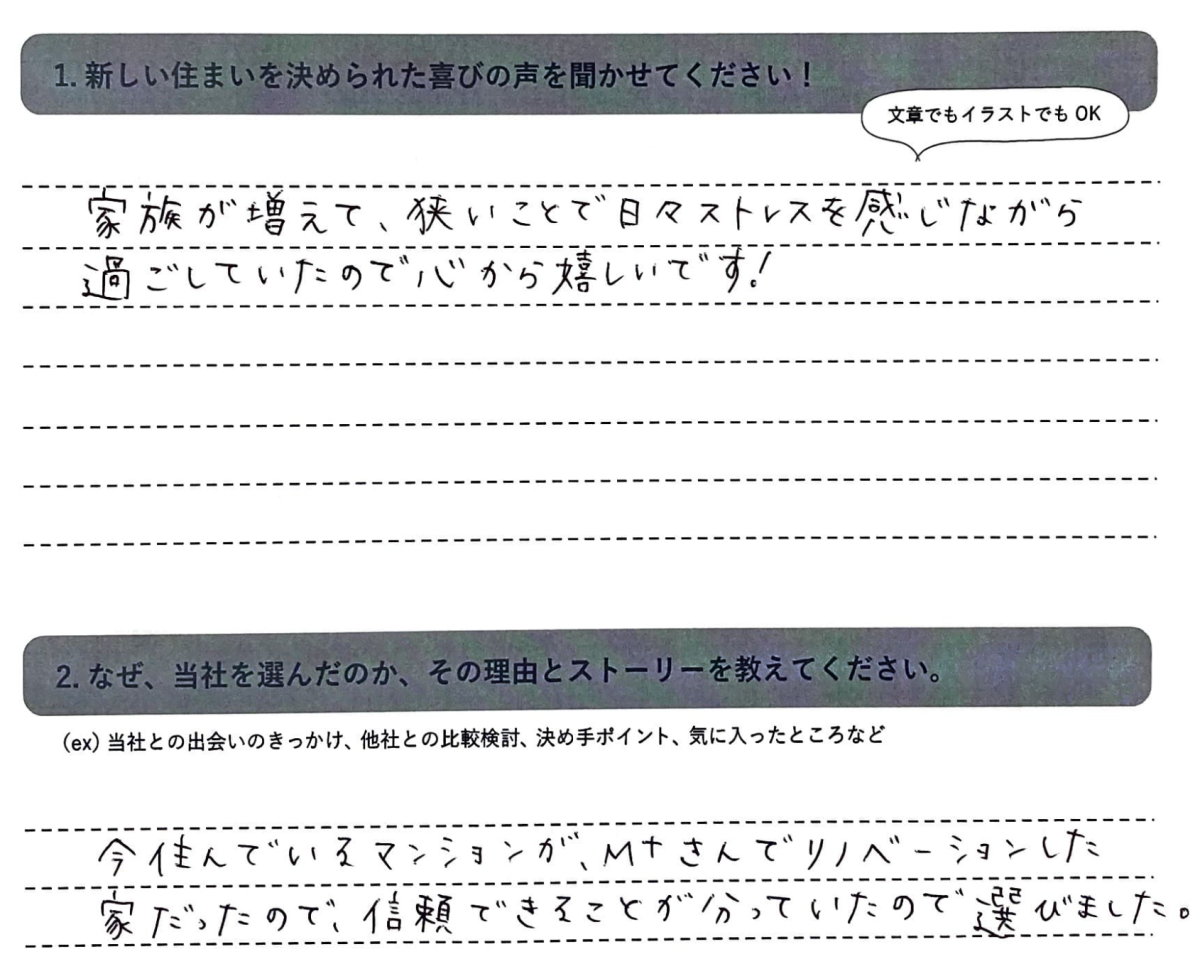 1. 新しい住まいを決められた喜びの声を聞かせてください！
文章でもイラストでも OK
家族が増えて、狭いことで日々ストレスを感じながら
過ごしていたので心から嬉しいです！
2. なぜ、当社を選んだのか、その理由とストーリーを教えてください。
（ex）当社との出会いのきっかけ、他社との比較検討、決め手ポイント、気に入ったところなど
今住んでいるマンションが、M+さんでリノベーションした
家だったので、信頼できることが分っていたので選びました。